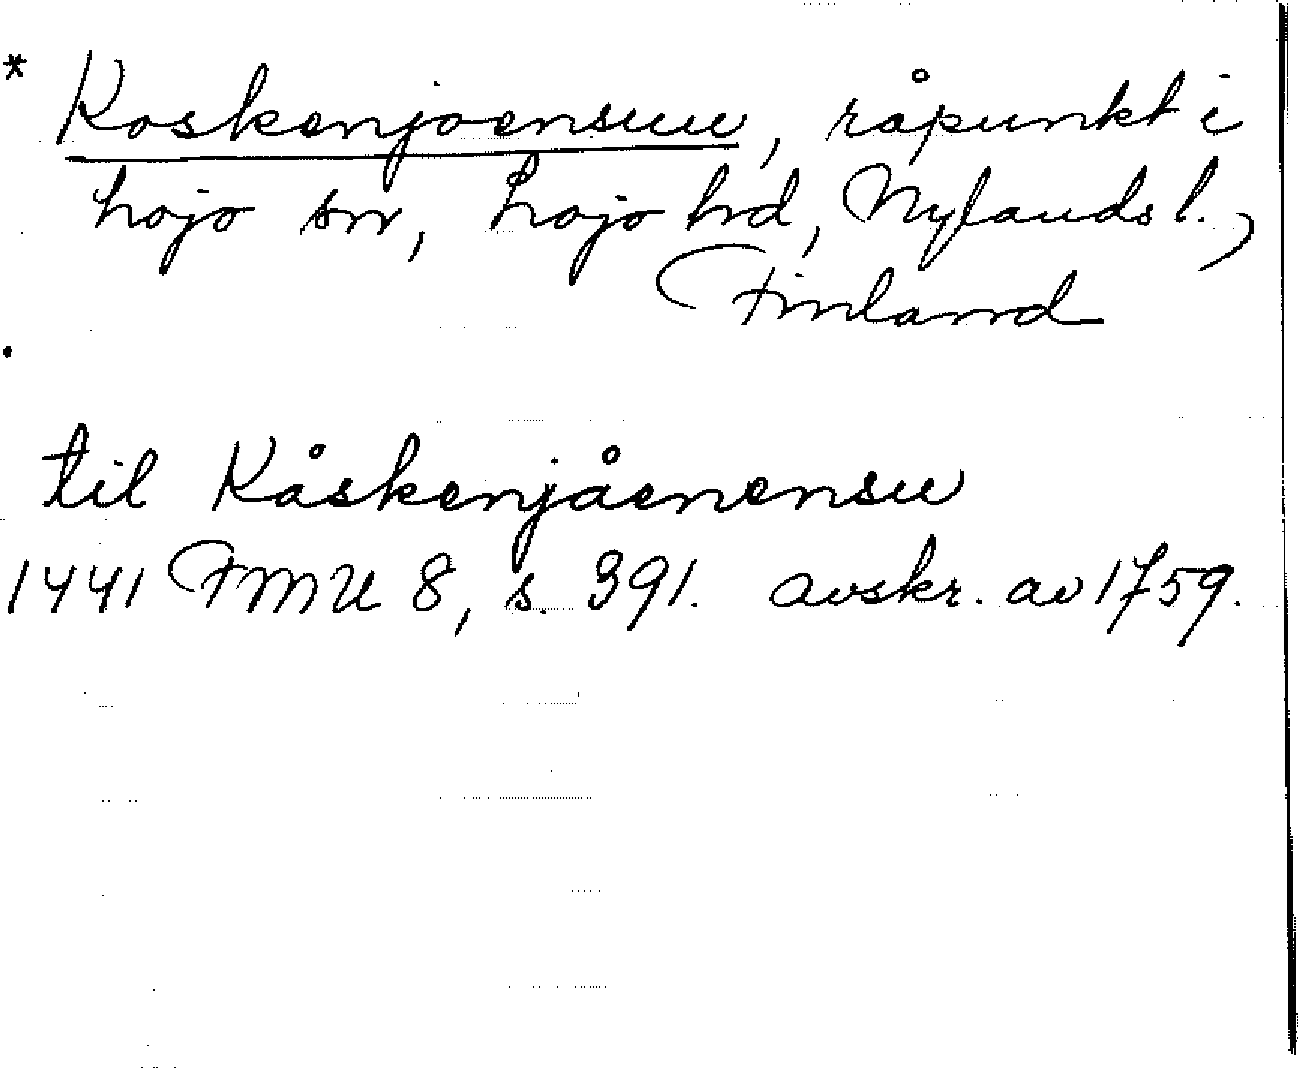 * Koskenjoensuu, råpunkt i
Lojo sn, Lojo hd, Nylands l.,
Finland
til Kåskenjåenensu
1441 FMU 8, s. 391. avskr. av 1759.